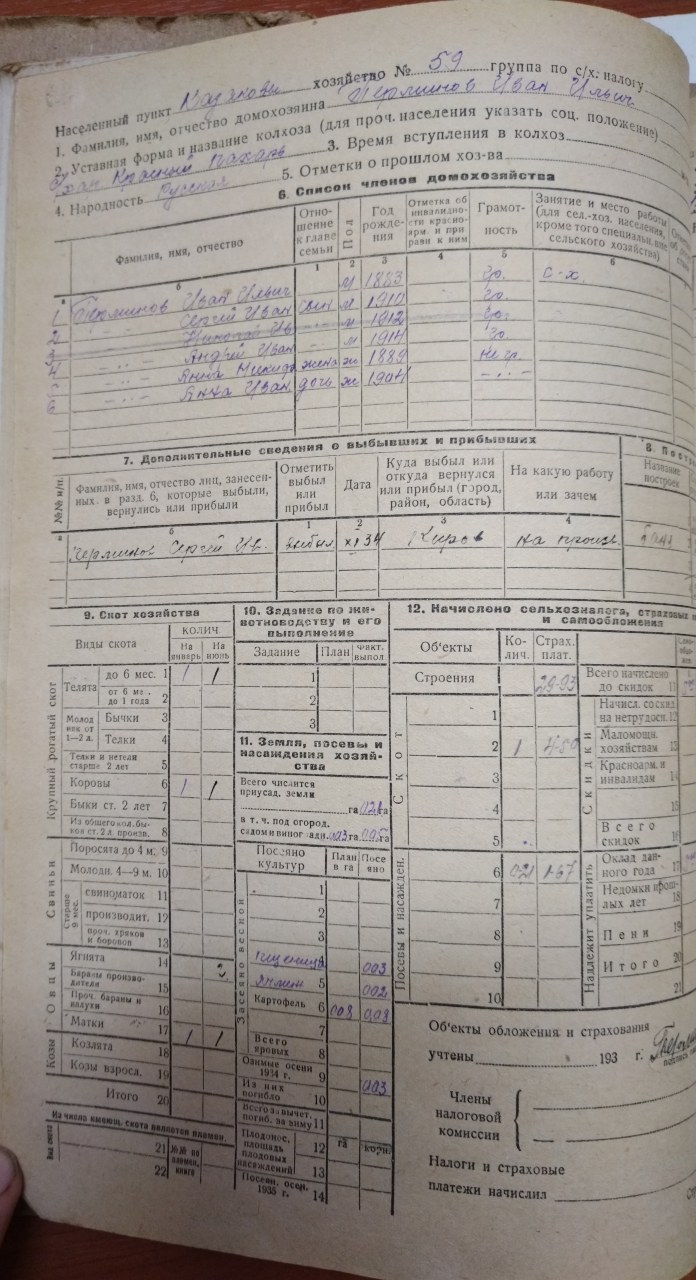 Населенный пункт хозяйство № 59 группа по с/х. налогу
1. Фамилия, имя, отчество домохозяина Перминов Иван Ильич
2. Уставная форма и название колхоза (для проч. населения указать соц. положение)
Красный пахарь 3. Время вступления в колхоз
4. Народность Русская 5. Отметки о прошлом хоз-ва
6. Список членов домохозяйства
Фамилия, имя, отчество Отношение к главе семьи Пол Год рождения Отметка об инвалидности красноарм. и при равн к ним Грамотность Занятие и место работы (для сел.-хоз. населения, кроме того специальн. вне сельского хозяйства)
а б 1 2 3 4 5 6
1 Перминов Иван Ильич м 1883 гр. с-х.
2 Сергей Иван сын м 1910 гр.
3 Николай Ив м 1912 гр.
4 Андрей Иван м 1914 гр.
5 Анна жена ж 1889 негр.
6 Анна Иван дочь ж 1904 -"-
7. Дополнительные сведения о выбывших и прибывших
№№ п/п. Фамилия, имя, отчество лиц, занесенных в разд. 6, которые выбыли, вернулись или прибыли Отметить выбыл или прибыл Дата Куда выбыл или откуда вернулся или прибыл (город, район, область) На какую работу или зачем
а б 1 2 3 4
Перминов Сергей Ив. выбыл XI 34 Киров на произв.
8. Пост
Название построек
9. Скот хозяйства
Виды скота КОЛИЧ. На январь На июнь
Крупный рогатый скот
Телята до 6 мес. 1 1 1
от 6 ме. до 1 года 2
Молодняк от 1—2 л. Бычки 3
Телки 4
Телки и нетели старше 2 лет 5
Коровы 6 1 1
Быки ст. 2 лет 7
Из общего кол. быков ст. 2 л. произв. 8
Свиньи
Поросята до 4 м. 9
Молодн. 4—9 м. 10
Старше 9 мес. свиноматок 11
производит. 12
проч. хряков и боровов 13
Овцы
Ягнята 14
Бараны производители 15
Проч. бараны и валухи 16
Матки 17 1 1
Козы
Козлята 18
Козы взросл. 19
Итого 20
Из числа имеющ. скота является племен.
Вид скота 21 №№ по племен. книге
22
10. Задание по животноводству и его выполнение
Задание План Факт. выпол.
1
2
3
11. Земля, посевы и насаждения хозяйства
Всего числится приусад. земли га га
в т. ч. под огород, садом виноградн. га га
Посеяно культур План в га Посеяно
Засеяно весной
1
2
3
4 Пшеница 003
5 Ячмен 002
Картофель 6 008 0,08
7
Всего яровых 8
Озимые осени 1934 г. 9
Из них погибло 10 003
Всего за вычет. погиб. за зиму 11
Плодонос. площадь плодовых насаждений 12 га корн.
13
Посеян. осен. 1935 г. 14
12. Начислено сельхозналога, страховых и самообложения
Об'екты Колич. Страх. плат.
Строения 29-93
Скот
1
2 1 4-80
3
4
5
Посевы и насажден.
6 021 1-67
7
8
9
10
Всего начислено до скидок 11
Скидки
Начисл. со скид на нетрудосп. 12
Маломощн. хозяйствам 13
Красноарм. и инвалидам 14
15
Всего скидок 16
Надлежит уплатить
Оклад данного года 17
Недоимки прошлых лет 18
Пени 19
Итого 20
21
Об'екты обложения и страхования
учтены 193 г.
Члены налоговой комиссии
Налоги и страховые
платежи начислил